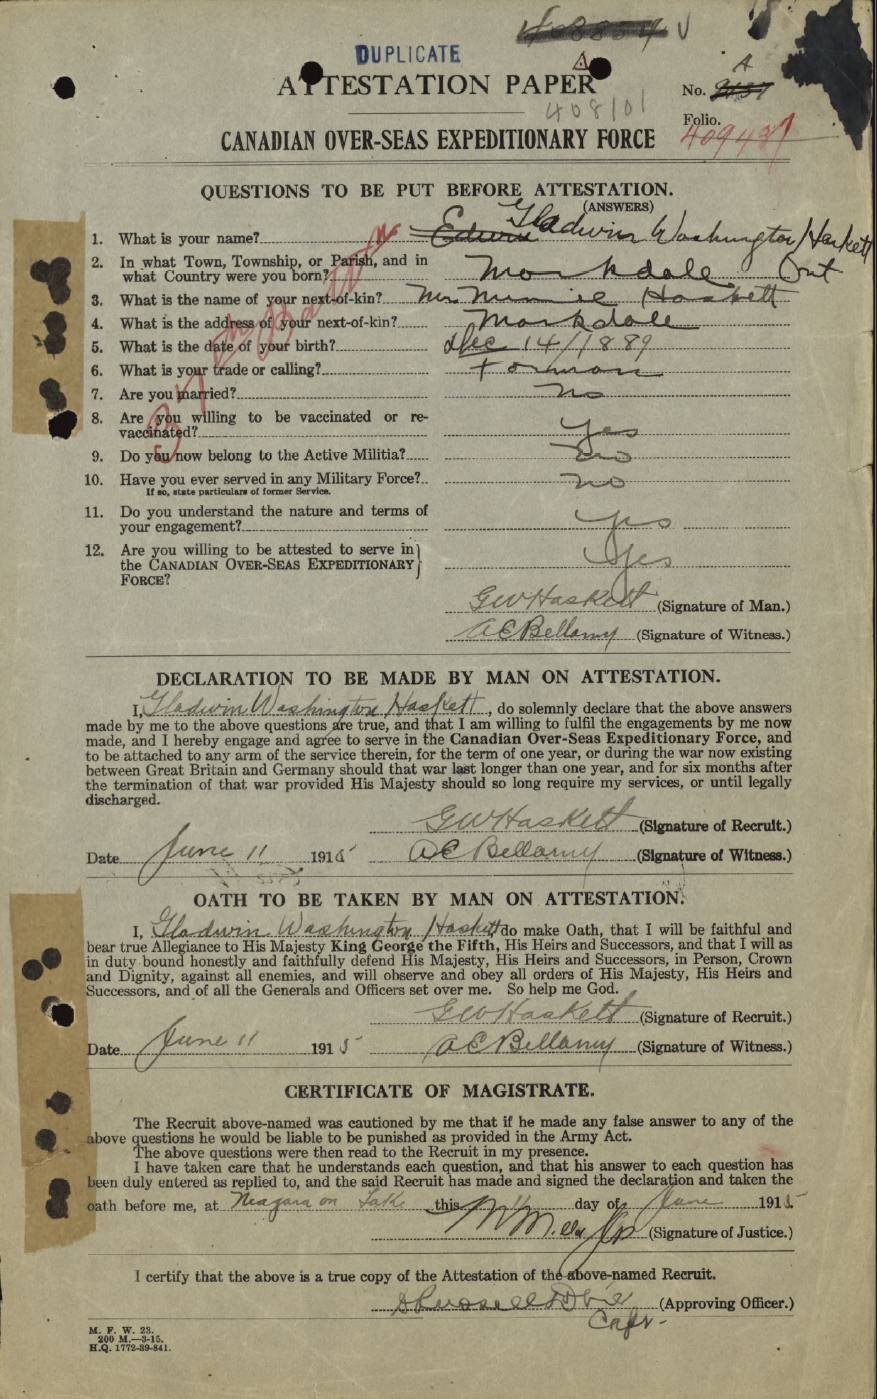 DUPLICATE
A
ATTESTATION PAPER
No.
A
408101
Folio.
409437
CANADIAN OVER-SEAS EXPEDITIONARY FORCE
QUESTIONS TO BE PUT BEFORE ATTESTATION.
(ANSWERS)
1. What is your name? Edwin Gladwin Washington Haskett
2. In what Town, Township, or Parish, and in what Country were you born? Markdale Ont
3. What is the name of your next-of-kin? Mrs. Minnie Haskett
4. What is the address of your next-of-kin? Markdale
5. What is the date of your birth? Dec 14/1889
6. What is your trade or calling?
7. Are you married? no
8. Are you willing to be vaccinated or re-
vaccinated? Yes
9. Do you now belong to the Active Militia? no
10. Have you ever served in any Military Force? no
If so, state particulars of former Service.
11. Do you understand the nature and terms of
your engagement? yes
12. Are you willing to be attested to serve in
the CANADIAN OVER-SEAS EXPEDITIONARY Yes
FORCE?
GWHaskett (Signature of Man.)
A E Bellamy (Signature of Witness.)
DECLARATION TO BE MADE BY MAN ON ATTESTATION.
I, Gladwin Washington Haskett, do solemnly declare that the above answers
made by me to the above questions are true, and that I am willing to fulfil the engagements by me now
made, and I hereby engage and agree to serve in the Canadian Over-Seas Expeditionary Force, and
to be attached to any arm of the service therein, for the term of one year, or during the war now existing
between Great Britain and Germany should that war last longer than one year, and for six months after
the termination of that war provided His Majesty should so long require my services, or until legally
discharged.
GWHaskett (Signature of Recruit.)
Date June 11 1915 A E Bellamy (Signature of Witness.)
OATH TO BE TAKEN BY MAN ON ATTESTATION.
I, Gladwin Washington Haskett do make Oath, that I will be faithful and
bear true Allegiance to His Majesty King George the Fifth, His Heirs and Successors, and that I will as
in duty bound honestly and faithfully defend His Majesty, His Heirs and Successors, in Person, Crown
and Dignity, against all enemies, and will observe and obey all orders of His Majesty, His Heirs and
Successors, and of all the Generals and Officers set over me. So help me God.
GWHaskett (Signature of Recruit.)
Date June 11 1915 A E Bellamy (Signature of Witness.)
CERTIFICATE OF MAGISTRATE.
The Recruit above-named was cautioned by me that if he made any false answer to any of the
above questions he would be liable to be punished as provided in the Army Act.
The above questions were then read to the Recruit in my presence.
I have taken care that he understands each question, and that his answer to each question has
been duly entered as replied to, and the said Recruit has made and signed the declaration and taken the
oath before me, at Niagara on Lake this 11 day of June 1915
(Signature of Justice.)
I certify that the above is a true copy of the Attestation of the above-named Recruit.
(Approving Officer.)
Capt-
M. F. W. 23.
200 M.—3-15.
H.Q. 1772-39-841.